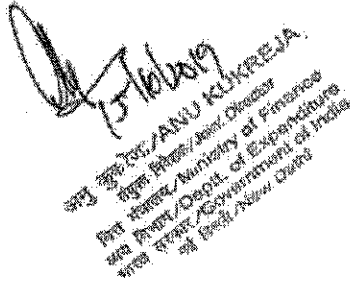 15/10/2019
अनु कुकरेजा/ANU KUKREJA
संयुक्त निदेशक/Joint Director
वित्त मंत्रालय/Ministry of Finance
व्यय विभाग/Deptt. of Expenditure
भारत सरकार/Government of India
नई दिल्ली/New Delhi